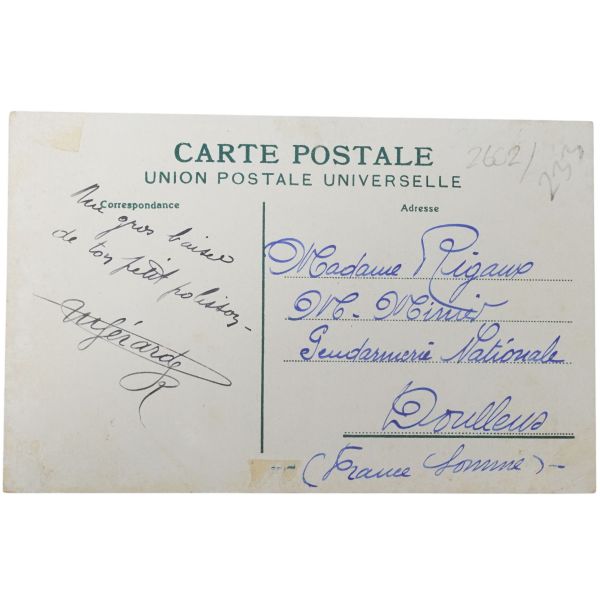 CARTE POSTALE
UNION POSTALE UNIVERSELLE
2602/
Correspondance
Adresse
gros baiser
de ton petit polisson
Madame Rigaux
M. Mimié
Gendarmerie Nationale
Doullens
(France Somme)